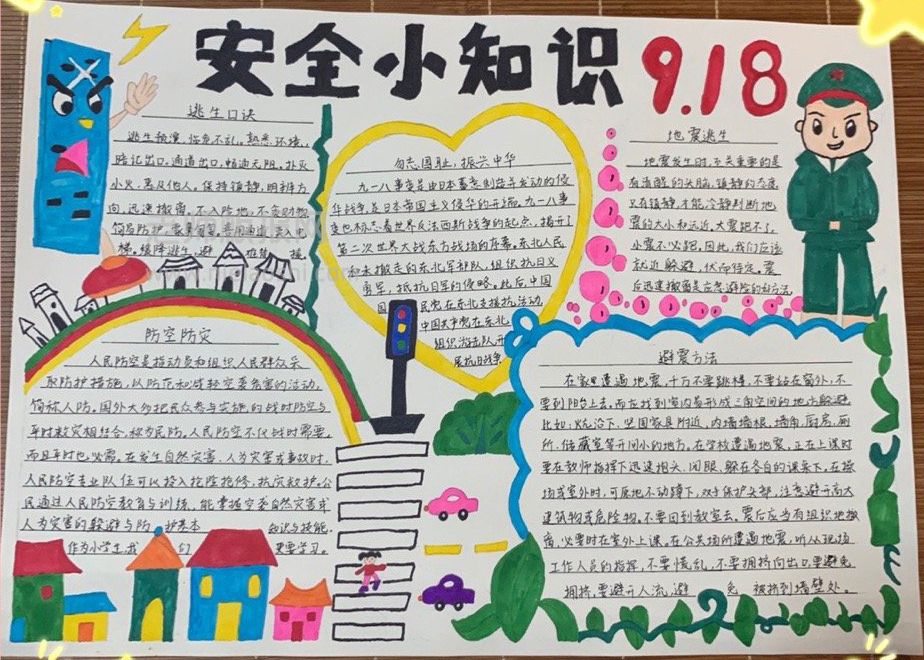 安全小知识 9.18
逃生口诀
逃生预演,临危不乱,熟悉环境,
暗记出口,通道出口,畅通无阻,扑灭
小火,惠及他人。保持镇静,明辨方
向,迅速撤离,不入险地,不贪财物,
简易防护,匍匐 善用通道,莫入电
梯,缓降逃生,避
勿忘国耻,振兴中华
九一八事变是由日本蓄意制造并发动的侵
华战争,是日本帝国主义侵华的开端,九一八事
变也标志着世界反法西斯战争的起点,揭开了
第二次世界大战东方战场的序幕,东北人民
和未撤走的东北军部队,组织抗日义
勇军,抵抗日军的侵略。此后,中国
国 民党在东北支援抗 活动,
中国共产党在东北
组织游击队开
展抗日战争
地震逃生
地震发生时,至关重要的是
有清醒的头脑,镇静的态度
只有镇静,才能冷静判断地
震的大小和远近,大震跑不了,
小震不必跑,因此,我们应该
就近躲避,伏而待定,震
后迅速撤离是应急避险的好方法,
防空防灾
人民防空是指动员和组织人民群众采
取防护措施,以防范和减轻空袭危害的活动,
简称人防。国外大多把民众参与实施,的战时防空与
平时救灾相结合,称为民防。人民防空不仅战时需要,
而且平时也必需。在发生自然灾害、人为灾害或事故时,
人民防空专业队伍可以投入抢险抢修,抗灾救护,公
民通过人民防空教育与训练,能掌握空袭自然灾害或
人为灾害的躲避与防 护基本 知识与技能,
作为小学生,我 们 更要学习。
避震方法
在家里遭遇地震,千万不要跳楼,不要站在窗外,不
要到阳台上去。而应找到室内易形成三角空间的地方躲避
比如:炕沿下、坚固家具附近,内墙墙根、墙角,厨房,厕
所、储藏室等开间小的地方。在学校遭遇地震,正在上课时
要在教师指挥下迅速抱头、闭眼、躲在各自的课桌下,在操
场或室外时,可原地不动蹲下,双手保护头部,注意避开高大
建筑物或危险物。不要回到教室去。震后应当有组织地撤
离,必要时在室外上课。在公共场所遭遇地震,听从现场
工作人员的指挥,不要慌乱,不要拥挤向出口,要避免
拥挤,要避开人流,避 免 被挤到墙壁处。